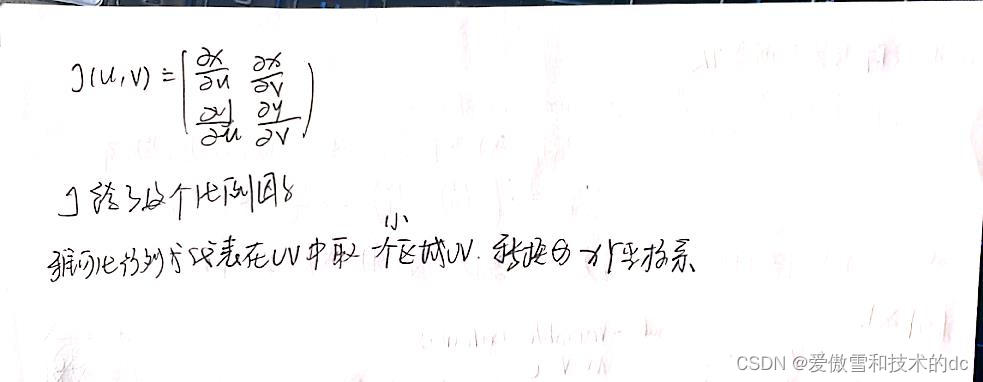 J(u,v) = ( ∂x/∂u ∂x/∂v
∂y/∂u ∂y/∂v )
J 给了这个比例因子
雅可比行列式代表在UV中取一个小区域UV. 转换为xy坐标系
CSDN @爱傲雪和技术的dc